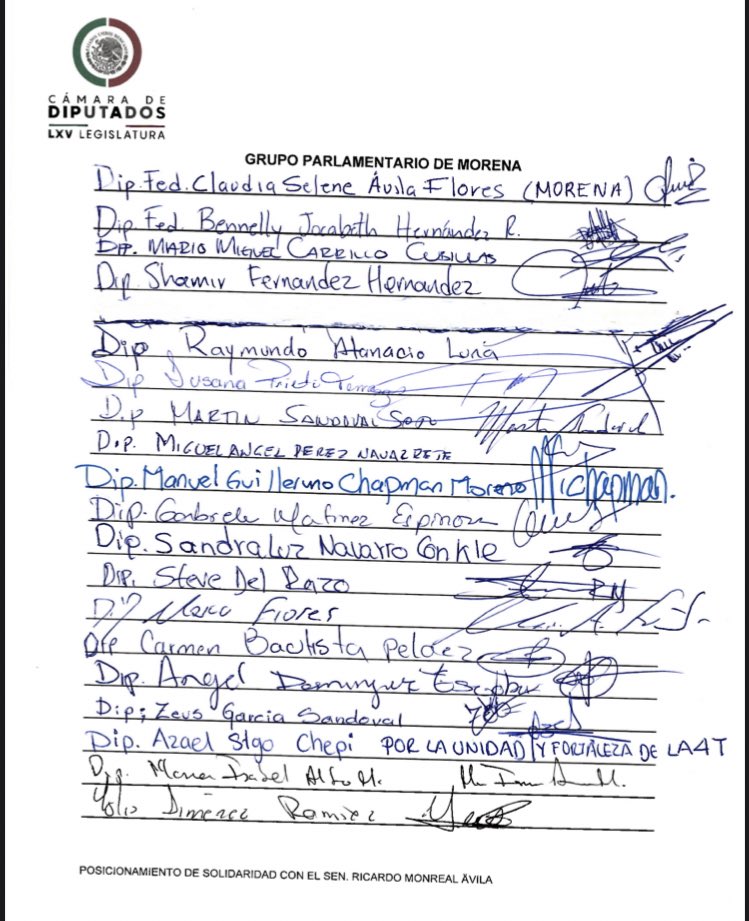 CÁMARA DE
DIPUTADOS
LXV LEGISLATURA
GRUPO PARLAMENTARIO DE MORENA
Dip. Fed. Claudia Selene Ávila Flores (MORENA)
Dip Fed. Bennelly Jocabeth Hernández R.
DIP. MARIO MIGUEL CARRILLO CUBILLAS
Dip. Shamir Fernandez Hernandez
Dip Raymundo Atanacio Luna
Dip Susana Prieto Terrazas
Dip MARTIN SANDOVAL SOTO Martin Sandoval
Dip. MIGUEL ANGEL PEREZ NAVARRETE
Dip. Manuel Guillermo Chapman Moreno MChapman.
Dip. Martinez Espinoza
Dip. Sandra Luz Navarro Conkle
Dip. Steve Del Razo
Dip Flores
Dip Carmen Bautista Peláez
Dip. Angel Dominguez Escobar
Dip; Zeus Garcia Sandoval
Dip. Azael Stgo Chepi POR LA UNIDAD Y FORTALEZA DE LA 4T
Dip. Maria Isabel Alfaro M.
Jiménez Ramirez
POSICIONAMIENTO DE SOLIDARIDAD CON EL SEN. RICARDO MONREAL ÁVILA